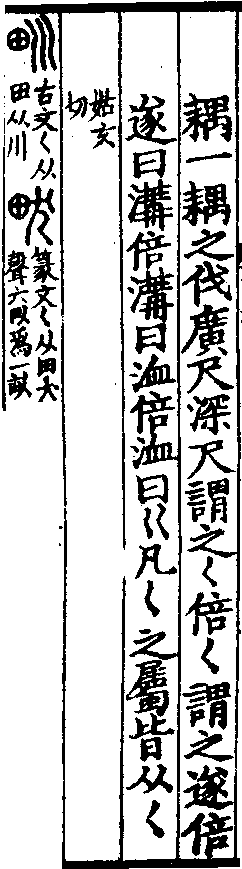 耦一耦之伐廣尺深尺謂之〈倍〈謂之遂倍
遂曰溝倍溝曰洫倍洫曰巜凡〈之屬皆从〈
姑
切
甽
古文〈从
田从川
畎
篆文〈从田犬
聲六畎爲一畝